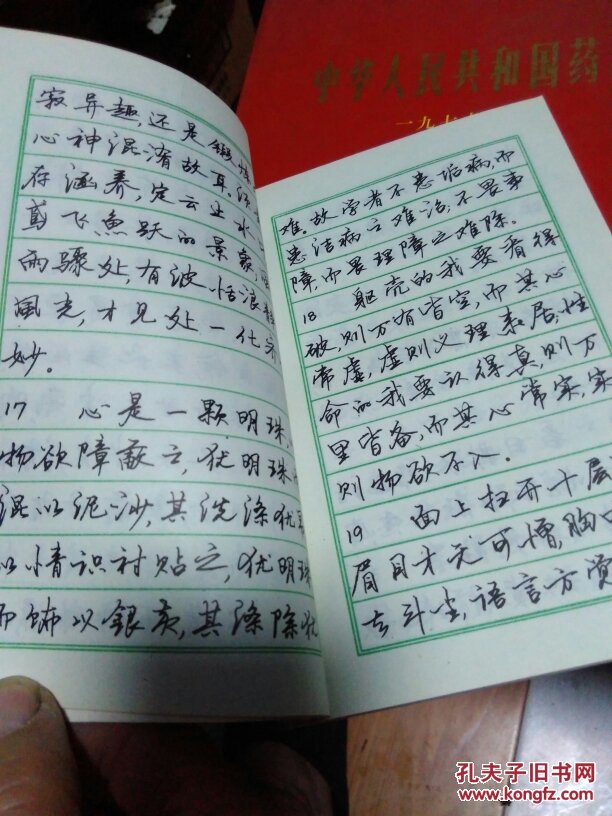 中华人民共和国药
一九七七
寂异趣,还是锻炼
心神混淆故耳。须
存涵养,定云止水
鸢飞魚跃的景象,
雨骤处,有波恬浪
風光,才见处一化齐
妙。
17 心是一颗明珠,
物欲障蔽之,犹明珠
混以泥沙,其洗涤犹
以情识衬贴之,犹明珠
而饰以銀灰,其涤除犹
难。故学者不患垢病,而
患洁病之难治;不畏事
障,而畏理障之难除。
18 躯壳的我要看得
破,则万有皆空,而其心
常虚,虚则义理来居;性
命的我要认得真,则万
里皆备,而其心常实,实
则物欲不入。
19 面上扫开十层
眉目才无可憎,胸
去斗尘,语言方觉
孔夫子旧书网
www.kongfz.com